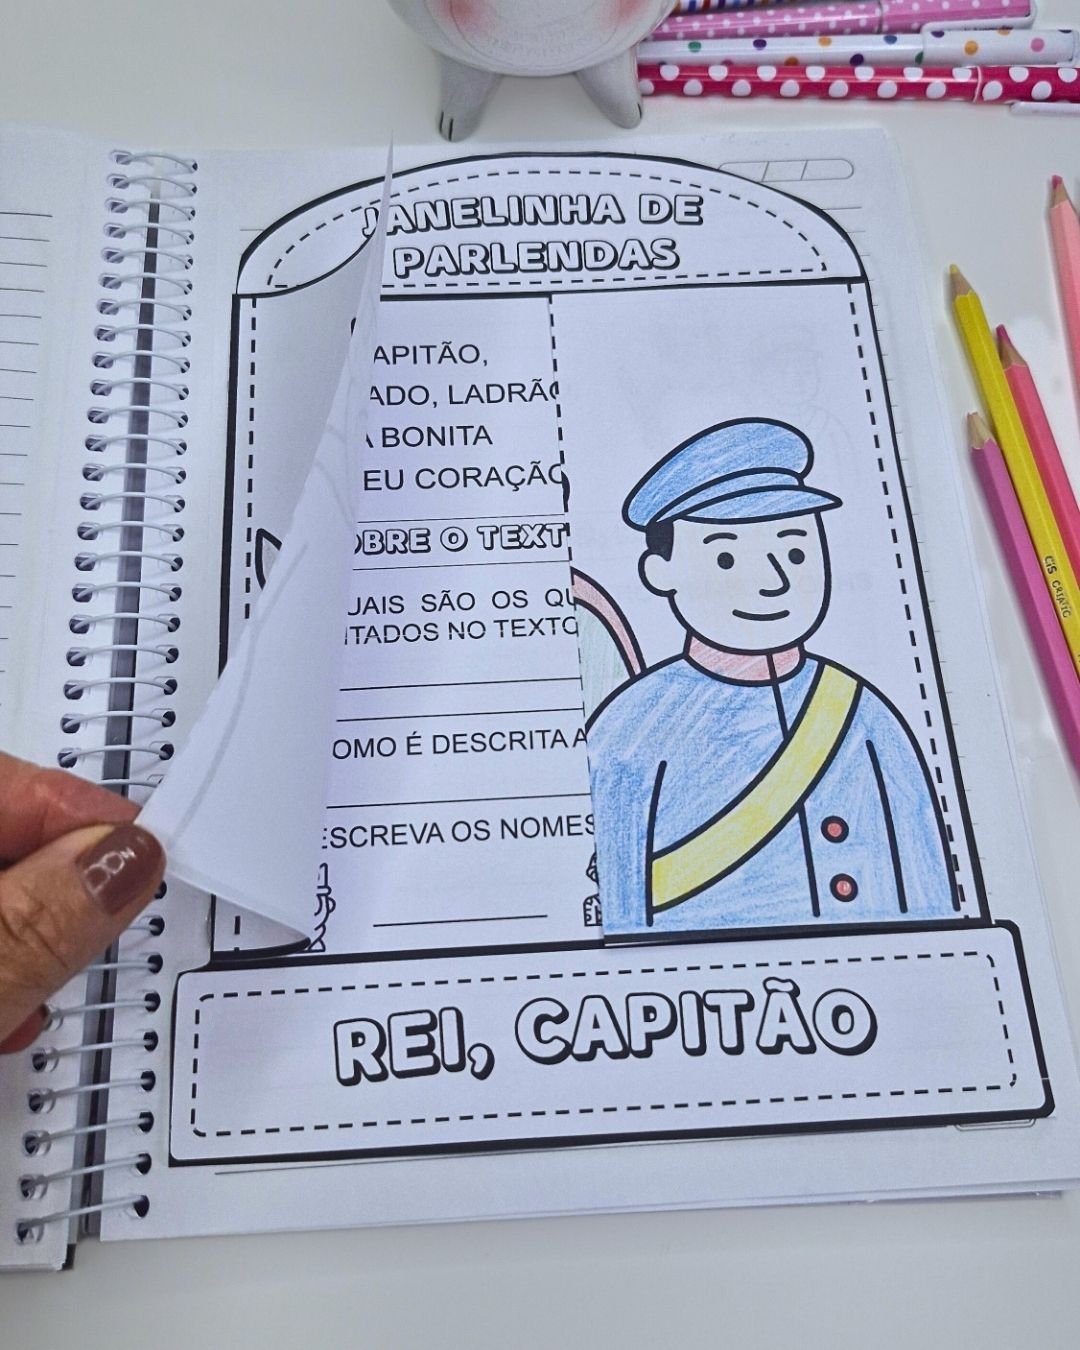 JANELINHA DE
PARLENDAS
APITÃO,
ADO, LADRÃO
A BONITA
EU CORAÇÃO
OBRE O TEXT
UAIS SÃO OS QU
ITADOS NO TEXTO
OMO É DESCRITA A
ESCREVA OS NOMES
REI, CAPITÃO
CiS CRIATIC